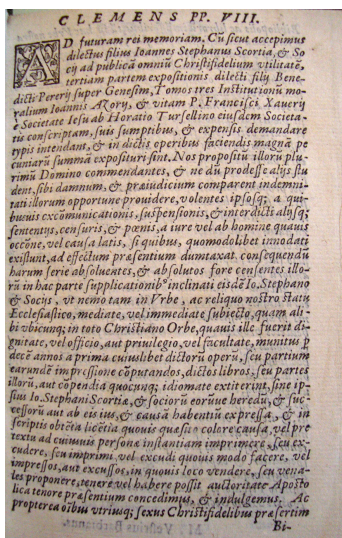 CLEMENS PP. VIII.
AD futuram rei memoriam. Cũ sicut accepimus
dilectus filius Ioannes Stephanus Scortia, & So
cij ad publicã omniũ Christifidelium vtilitatẽ,
tertiam partem expositionis dilecti filij Bene
dicti Pererij super Genesim, Tomos tres Institutionũ mo
ralium Ioannis Azory, & vitam P. Francisci Xauerij
è Societate Iesu ab Horatio Tursellino eiusdem Societa-
tis conscriptam, suis sumptibus, & expensis demandare
typis intendant, & in dictis operibus faciendis magnã pe
cuniarũ summã exposituri sint. Nos propositũ illoru plu-
rimũ Domino commendantes, & ne dũ prodesse alijs stu
dent, sibi damnum, & praeiudicium comparent indemni-
tati illorum opportune prouidere, volentes ipsosq; a qui-
busuis excõmunicationis, suspensionis, & interdicti alijsq;
sententys, censuris, & poenis, a iure vel ab homine quauis
occõne, vel causa latis, si quibus, quomodolibet innodati
existunt, ad effectum praesentium dumtaxat consequendũ
harum serie absoluentes, & absolutos fore censentes illo-
rũ in hac parte supplicationib⁹ inclinati eisdẽ Io. Stephano
& Socijs, vt nemo tam in Vrbe, ac reliquo nostro statu
Ecclesiastico, mediate, vel immediate subiecto, quam ali-
bi vbicunq; in toto Christiano Orbe, quauis ille fuerit di-
gnitate, vel officio, aut priuilegio, vel facultate, munitus p
decẽ annos a prima cuiuslibet dictorũ operũ, seu partium
earundẽ impressione cõputandos, dictos libros, seu partes
illorũ, aut cõpendia quocunq; idiomate extiterint, sine ip-
sius Io. Stephani Scortiæ, & sociorũ eorũue heredũ, & suc-
cessorũ aut ab eis ius, & causã habentiũ expressa, & in
scriptis obtẽta licẽtia quouis quæsito colore causa, vel pre
textu ad cuiusuis personæ instantiam imprimere, seu ex-
cudere, seu imprimi, vel excudi quouis modo facere, vel
impressos, aut excussos, in quouis loco vendere, seu vena-
les proponere, tenere vel habere possit auctoritate Aposto
lica tenore praesentium concedimus, & indulgemus. Ac
propterea oĩbus vtriusq; sexus Christifidelibus præsertim
Bi-